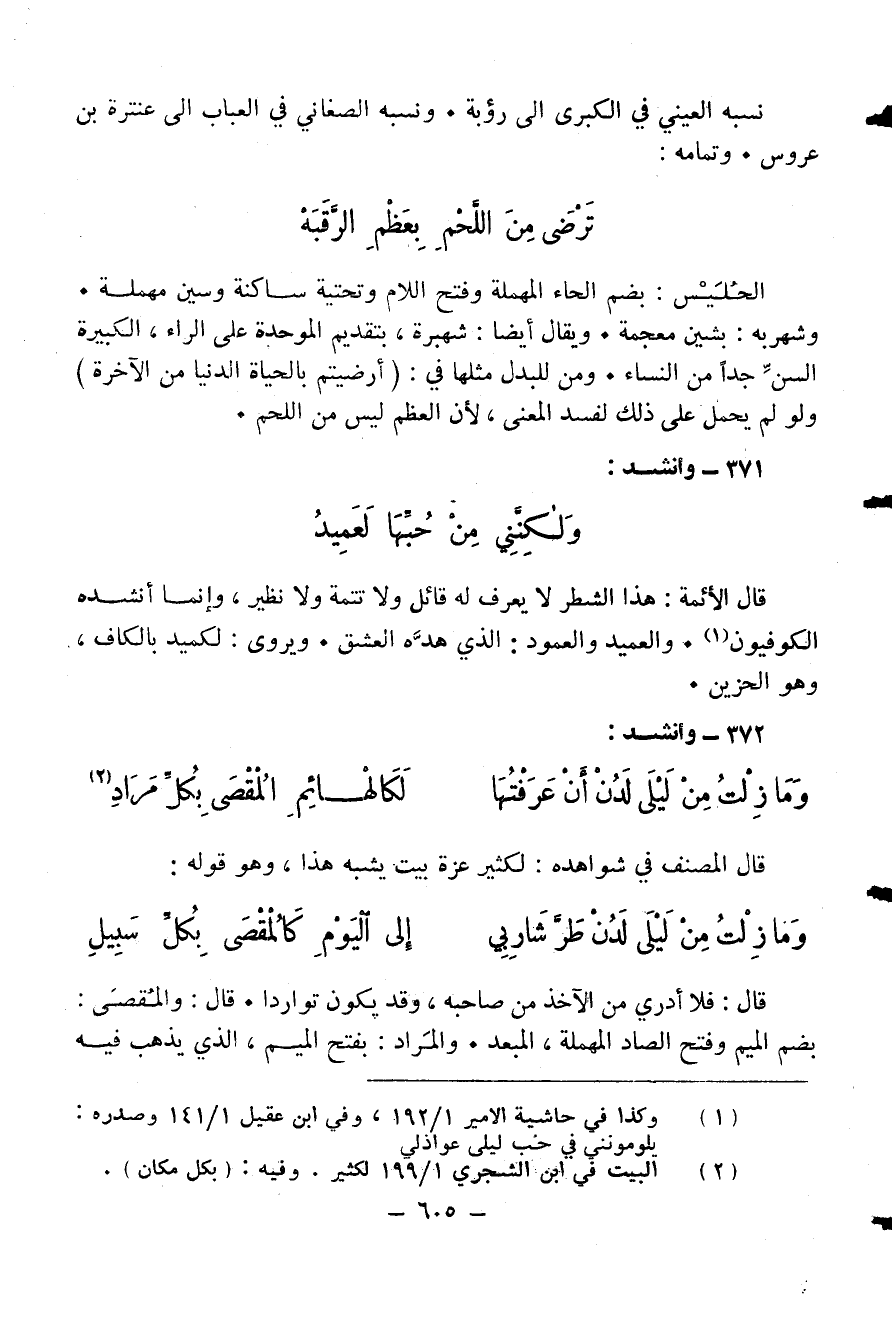 نسبه العيني في الكبرى الى رؤبة • ونسبه الصغاني في العباب الى عنترة بن
عروس • وتمامه :
تَرْضَى مِنَ اللَّحْمِ بِعَظْمِ الرَّقَبَهْ
الحُلَيْس : بضم الحاء المهملة وفتح اللام وتحتية ساكنة وسين مهملة •
وشهربه : بشين معجمة • ويقال أيضا : شهبرة ، بتقديم الموحدة على الراء ، الكبيرة
السنّ جداً من النساء • ومن للبدل مثلها في : ( أرضيتم بالحياة الدنيا من الآخرة )
ولو لم يحمل على ذلك لفسد المعنى ، لأن العظم ليس من اللحم •
٣٧١ - وأنشد :
وَلٰكِنَّنِي مِنْ حُبِّهَا لَعَمِيدُ
قال الأئمة : هذا الشطر لا يعرف له قائل ولا تتمة ولا نظير ، وإنما أنشده
الكوفيون(١) • والعميد والعمود : الذي هدَّه العشق • ويروى : لكميد بالكاف ،
وهو الحزين •
٣٧٢ - وأنشد :
وَمَا زِلْتُ مِنْ لَيْلَى لَدُنْ أَنْ عَرَفْتُهَا لَكَالْهَائِمِ الْمُقْصَى بِكُلِّ مَرَادِ(٢)
قال المصنف في شواهده : لكثير عزة بيت يشبه هذا ، وهو قوله :
وَمَا زِلْتُ مِنْ لَيْلَى لَدُنْ طَرَّ شَارِبِي إلى ٱلْيَوْمِ كَالْمُقْصَى بِكُلِّ سَبِيلِ
قال : فلا أدري من الآخذ من صاحبه ، وقد يكون تواردا • قال : والمُقصَى :
بضم الميم وفتح الصاد المهملة ، المبعد • والمَراد : بفتح الميم ، الذي يذهب فيه
(١) وكذا في حاشية الامير ١٩٢/١ ، وفي ابن عقيل ١٤١/١ وصدره :
يلومونني في حب ليلى عواذلي
(٢) البيت في ابن الشجري ١٩٩/١ لكثير . وفيه : ( بكل مكان ) .
- ٦٠٥ -